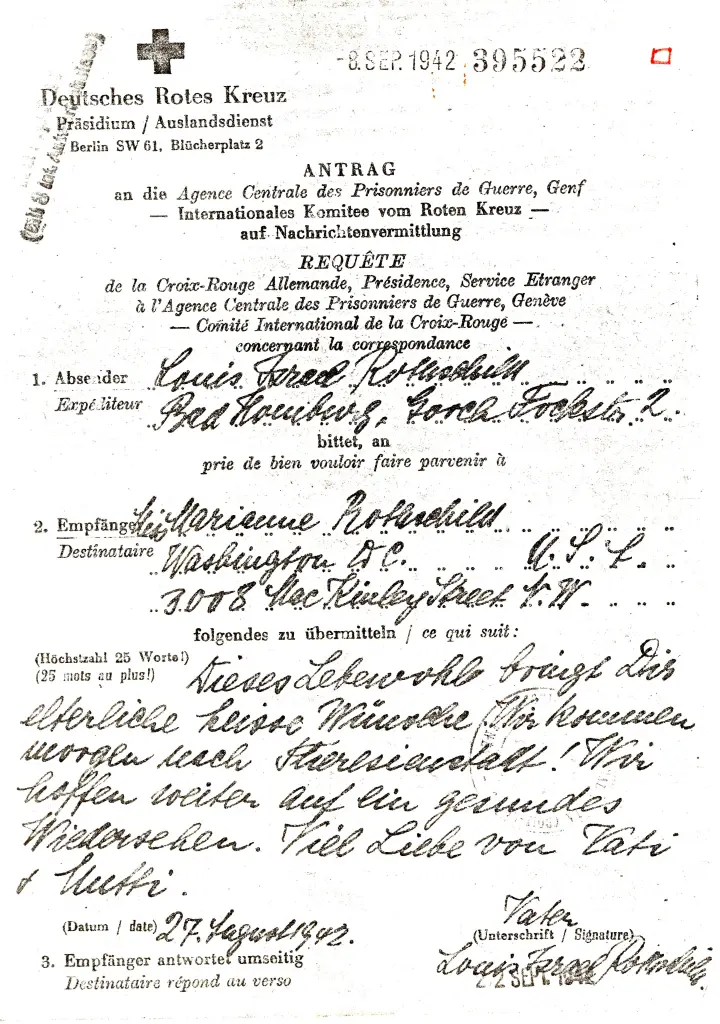 -8. SEP. 1942 395522
Deutsches Rotes Kreuz
Präsidium / Auslandsdienst
Berlin SW 61, Blücherplatz 2
ANTRAG
an die Agence Centrale des Prisonniers de Guerre, Genf
— Internationales Komitee vom Roten Kreuz —
auf Nachrichtenvermittlung
REQUÊTE
de la Croix-Rouge Allemande, Présidence, Service Etranger
à l'Agence Centrale des Prisonniers de Guerre, Genève
— Comité International de la Croix-Rouge —
concernant la correspondance
1. Absender Louis Israel Rothschild
Expéditeur Bad Homburg, Gorch Fockstr. 2.
bittet, an
prie de bien vouloir faire parvenir à
2. Empfänger Marianne Rothschild
Destinataire Washington D.C. U.S.
3008 Mac Kinley Street N.W.
folgendes zu übermitteln / ce qui suit:
(Höchstzahl 25 Worte!)
(25 mots au plus!) Dieses Lebewohl bringt Dir
elterliche heisse Wünsche. Wir kommen
morgen nach Theresienstadt! Wir
hoffen weiter auf ein gesundes
Wiedersehen. Viel Liebe von Vati
+ Mutti.
Vater
(Datum / date) 27. August 1942. (Unterschrift / Signature)
3. Empfänger antwortet umseitig Louis Israel Rothschild
Destinataire répond au verso